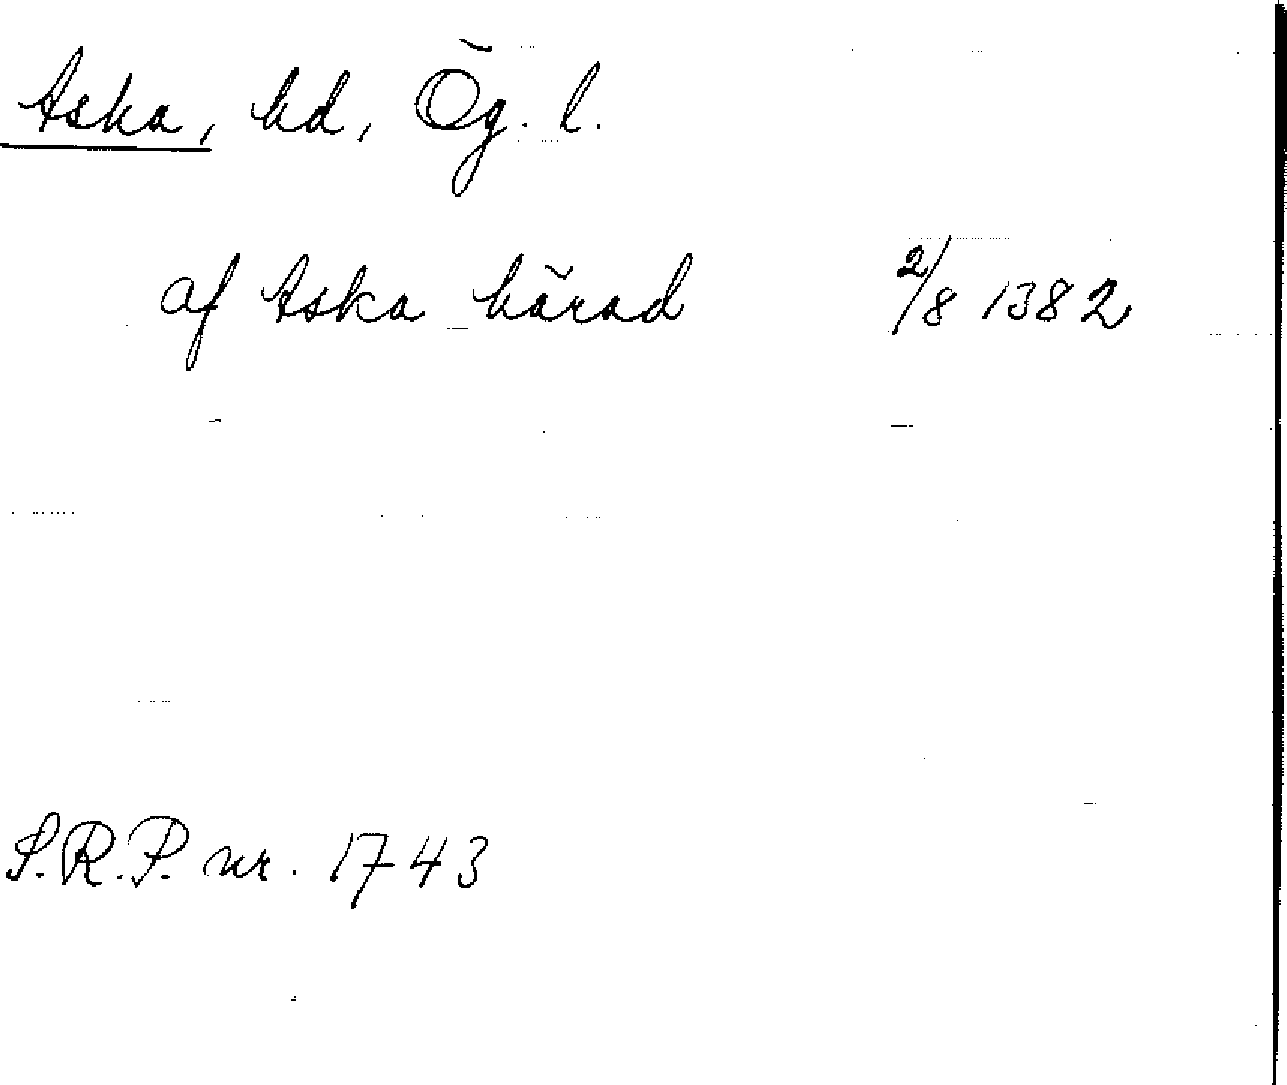 Aska, hd, Ög. l.
af Aska härad 2/8 1382
S.R.P. nr. 1743